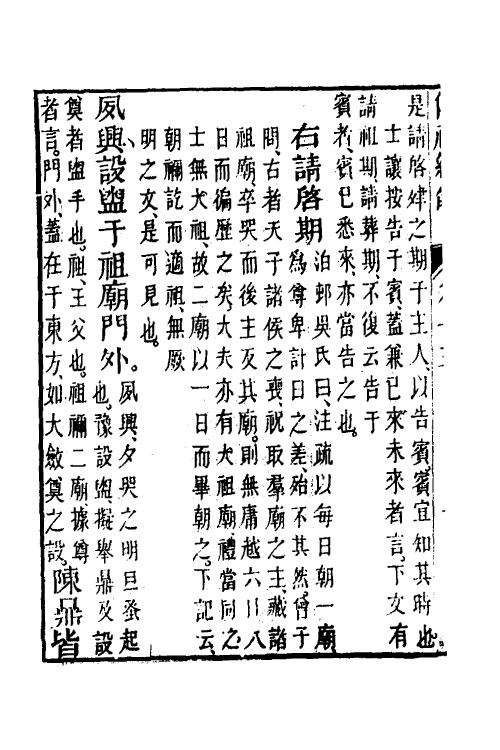 是請啓殯之期于主人以告賓賓宜知其時也
士讓按告于賓蓋兼已來未來者言下文有
請祖期請葬期不復云告于
賓者賓已悉來亦當告之也
右請啓期
泊邨吳氏曰注疏以每日朝一廟
為尊卑計日之差殆不其然曾子
問右者天子諸侯之喪祝取羣廟之主藏諸
祖廟卒哭而後主反其廟則無庸越六日八
日而徧歷之矣大夫亦有大祖廟禮當同之
士無大祖故二廟以一日而畢朝之下記云
朝禰訖而適祖無厥
明之文是可見也
夙興設盥于祖廟門外
夙興夕哭之明旦蚤起
也豫設盥擬舉鼎及設
奠者盥手也祖王父也祖禰二廟據尊
者言門外蓋在于東方如大斂奠之設
陳鼎皆